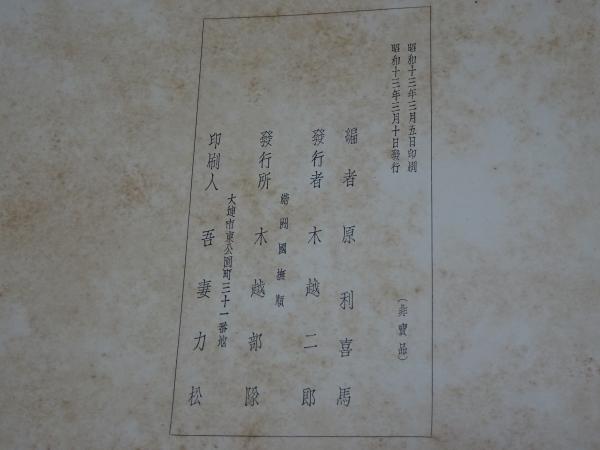 昭和十三年三月五日印刷
昭和十三年三月十日發行
（非賣品）
編者　原利喜馬
發行者　木越二郎
滿洲國撫順
發行所　木越部隊
大連市東公園町三十一番地
印刷人　吾妻力松